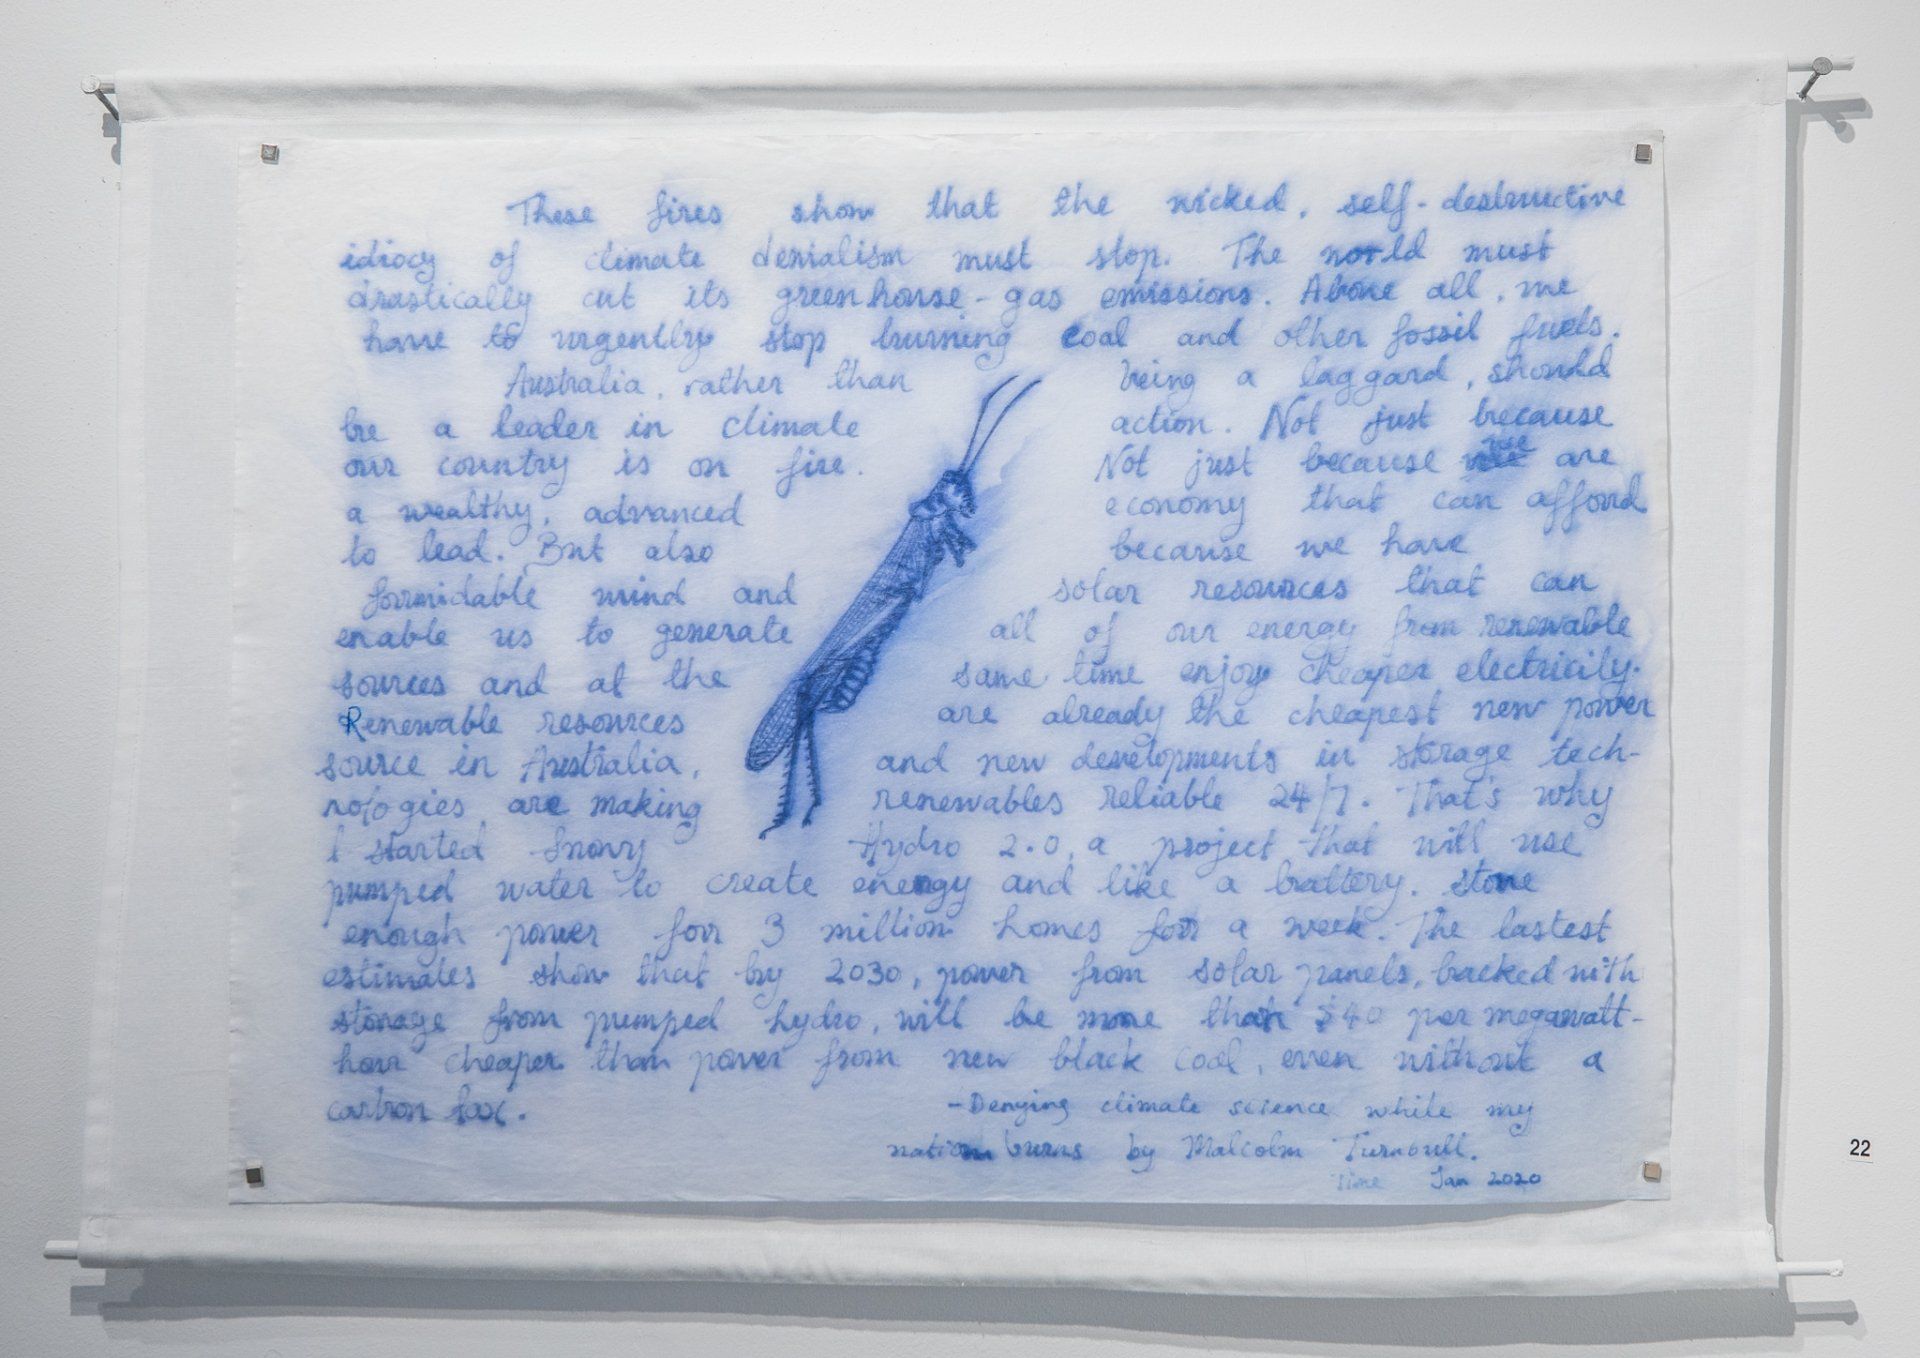 These fires show that the wicked, self-destructive
idiocy of climate denialism must stop. The world must
drastically cut its greenhouse-gas emissions. Above all, we
have to urgently stop burning coal and other fossil fuels.
Australia, rather than being a laggard, should
be a leader in climate action. Not just because
our country is on fire. Not just because we are
a wealthy, advanced economy that can afford
to lead. But also because we have
formidable wind and solar resources that can
enable us to generate all of our energy from renewable
sources and at the same time enjoy cheaper electricity.
Renewable resources are already the cheapest new power
source in Australia, and new developments in storage tech-
nologies are making renewables reliable 24/7. That's why
I started Snowy Hydro 2.0, a project that will use
pumped water to create energy and like a battery. store
enough power for 3 million homes for a week. The lastest
estimates show that by 2030, power from solar panels, backed with
storage from pumped hydro, will be more than $40 per megawatt-
hour cheaper than power from new black coal, even without a
carbon tax.
-Denying climate science while my
nation burns by Malcolm Turnbull.
Time Jan 2020
22